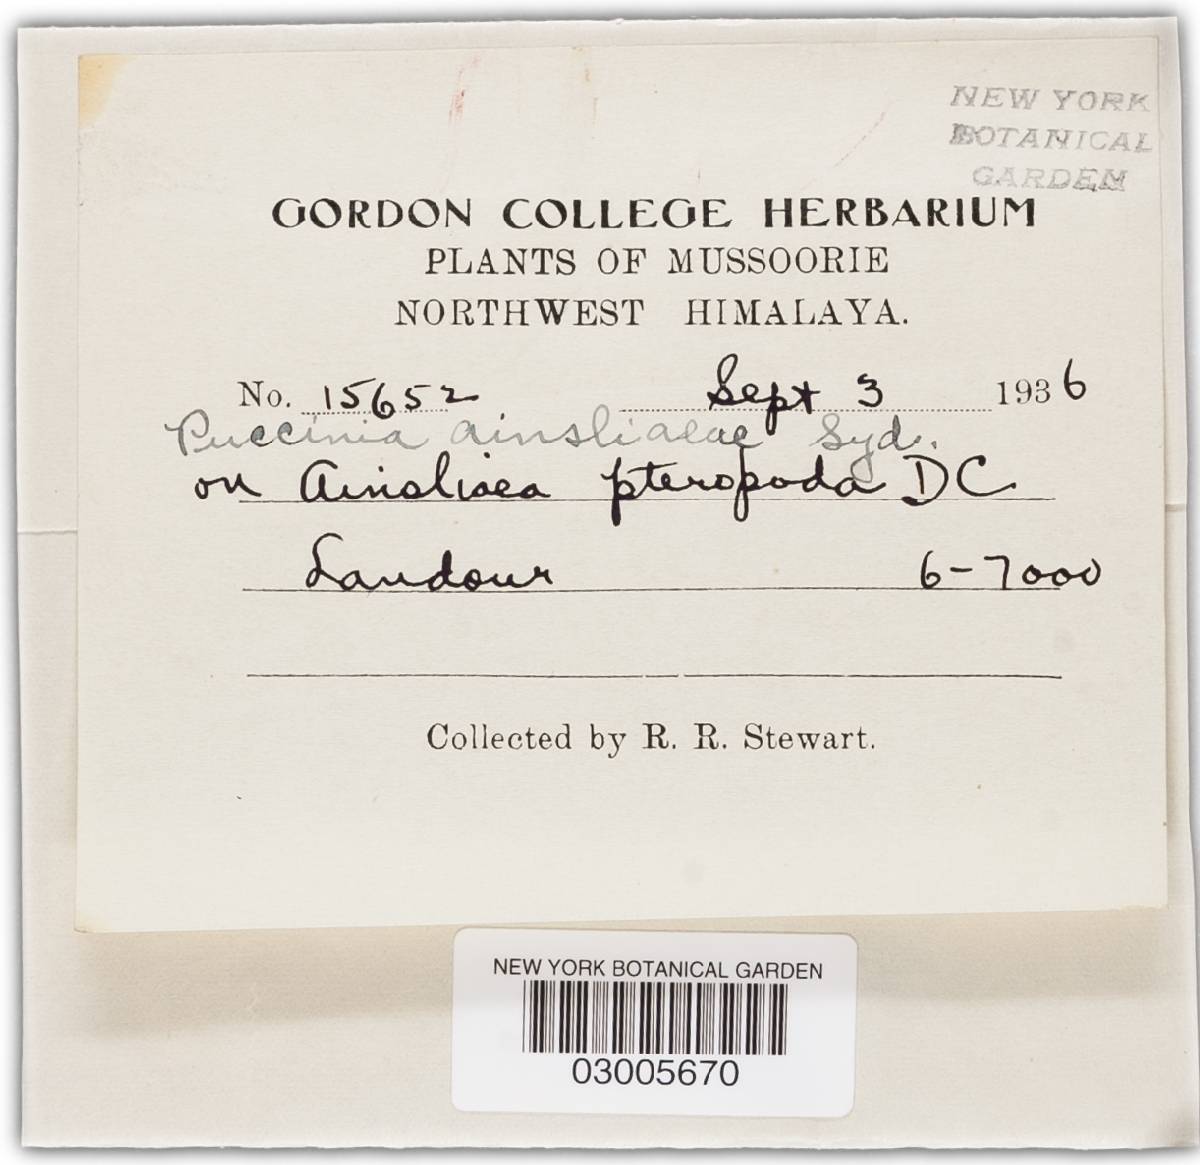 NEW YORK
BOTANICAL
GARDEN
GORDON COLLEGE HERBARIUM
PLANTS OF MUSSOORIE
NORTHWEST HIMALAYA.
No. 15652 Sept 3 1936
Puccinia ainsliaeae Syd.
on Ainsliaea pteropoda DC
Landour 6-7000
Collected by R. R. Stewart.
NEW YORK BOTANICAL GARDEN
03005670